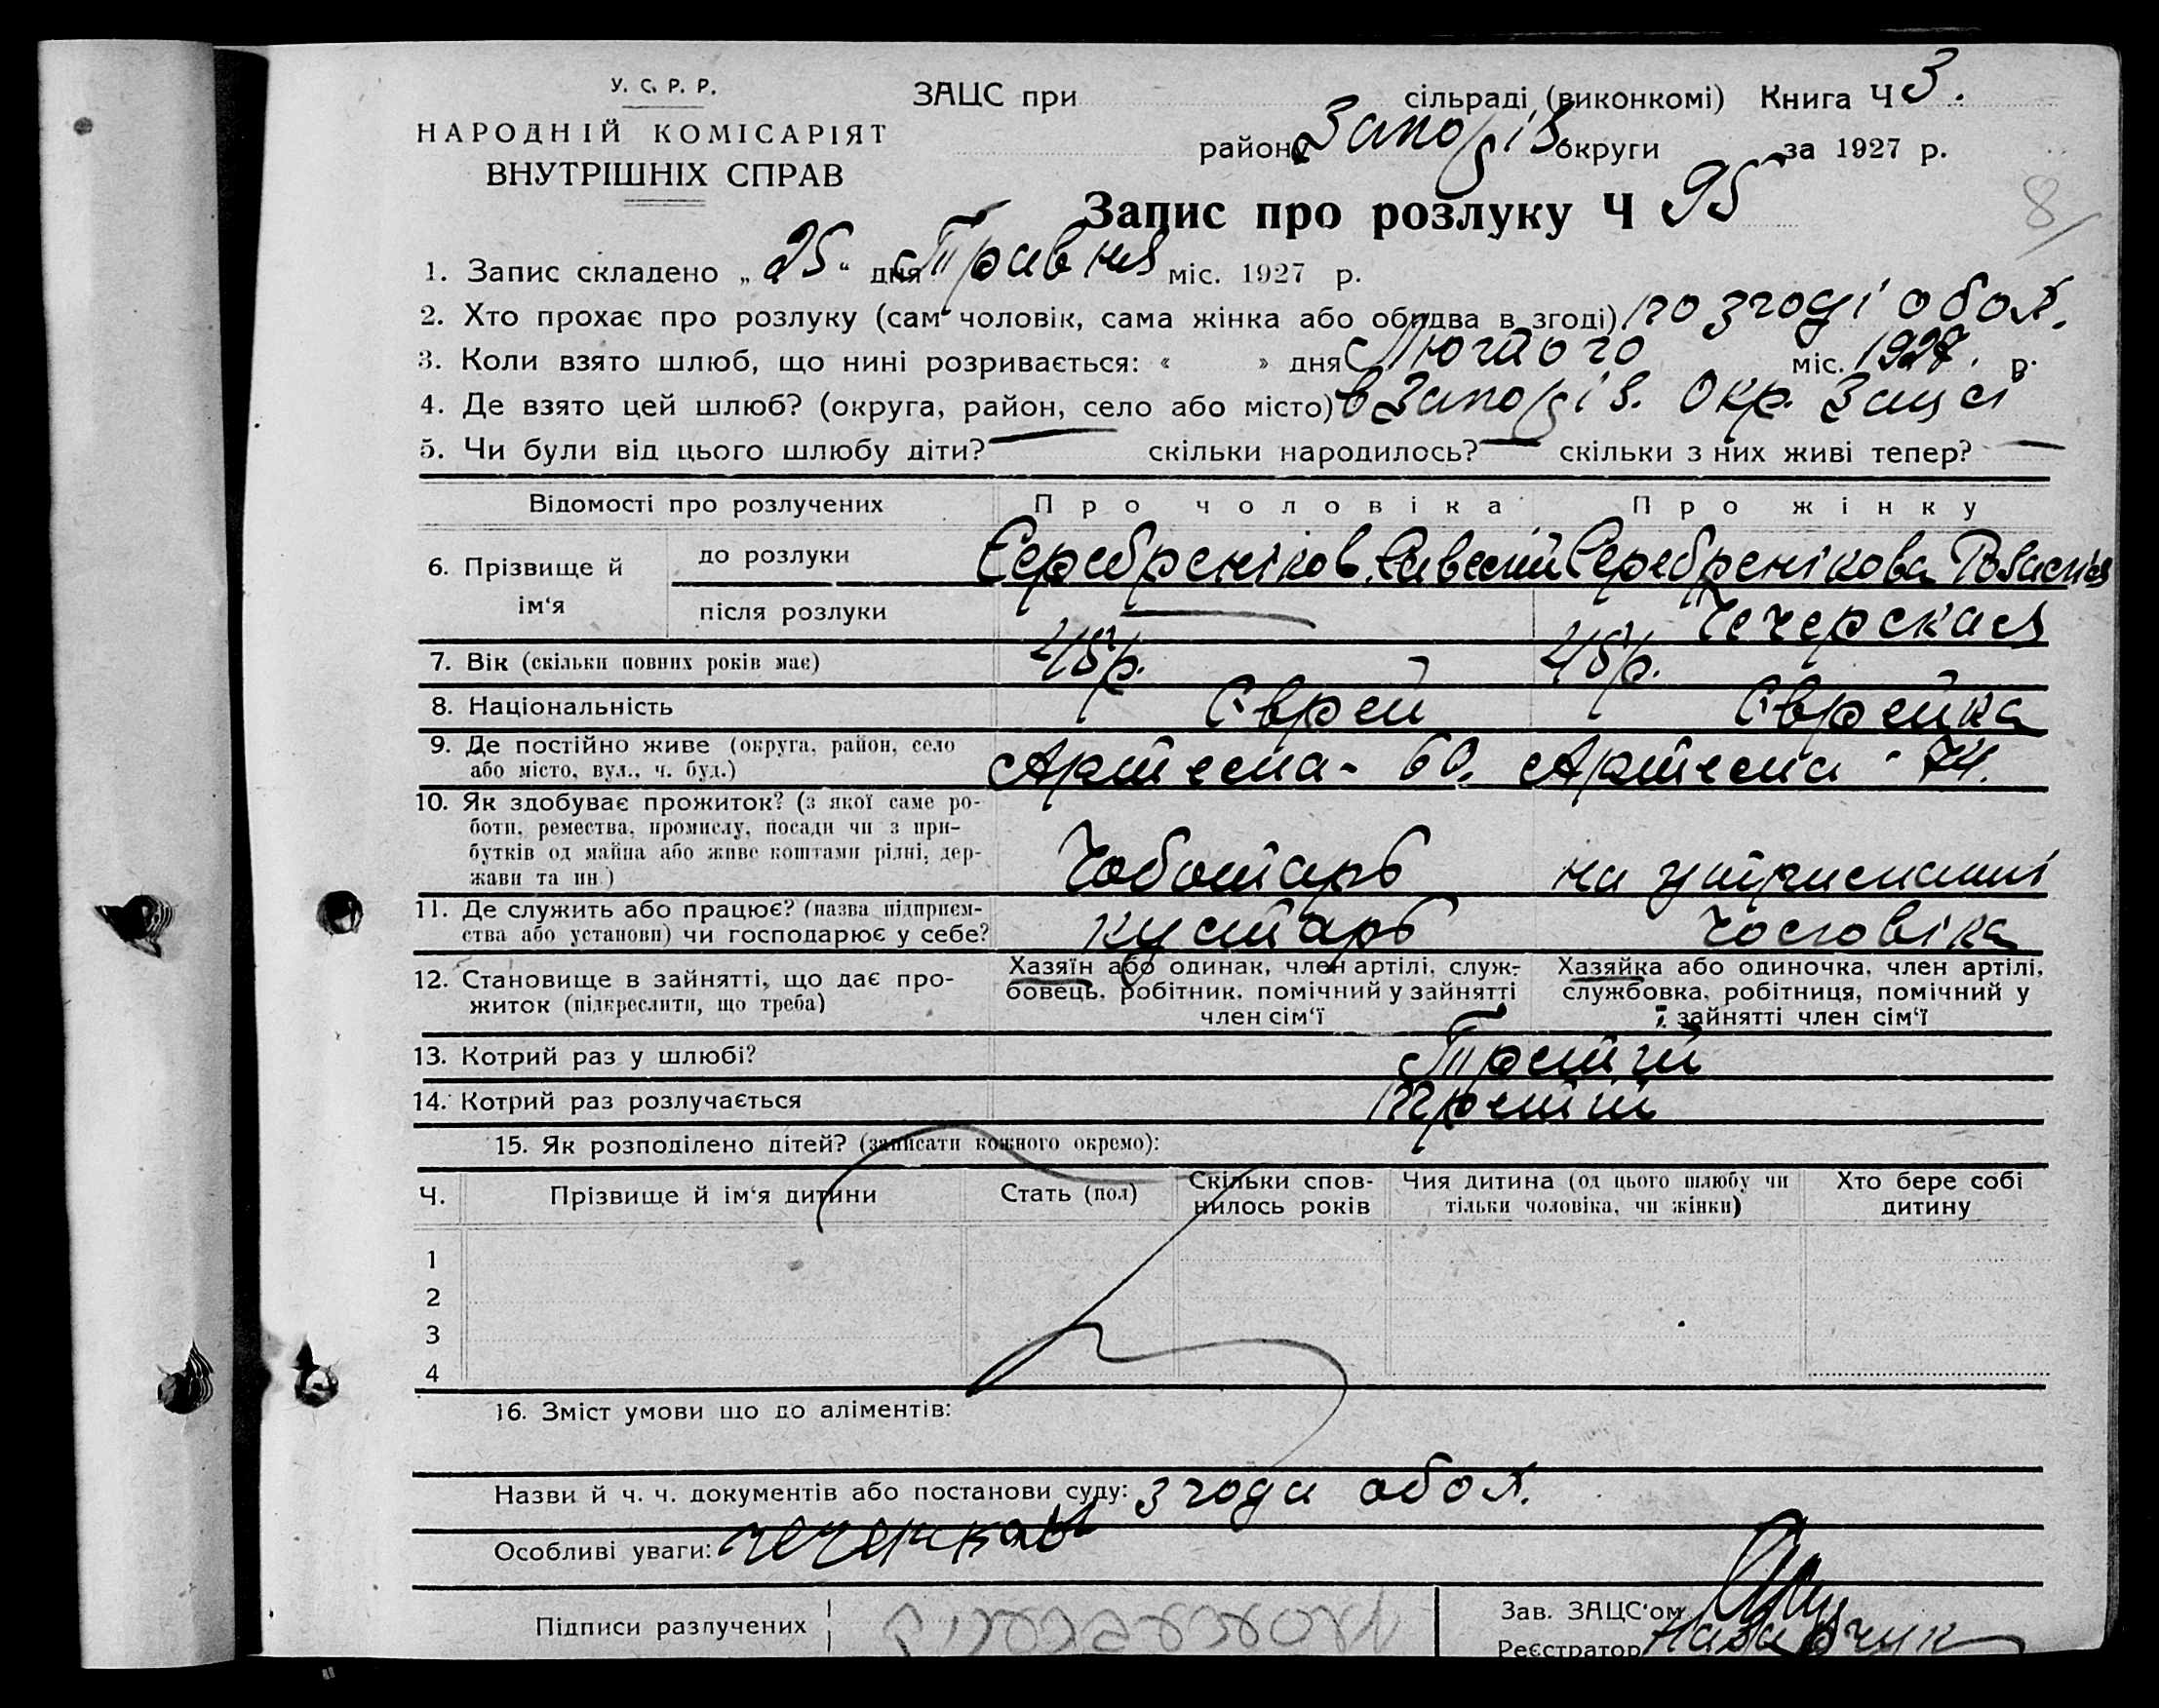 У. С. Р. Р.
НАРОДНІЙ КОМІСАРІЯТ
ВНУТРІШНІХ СПРАВ
ЗАЦС при сільраді (виконкомі) Книга Ч 3.
району Запоріз. округи за 1927 р.
Запис про розлуку Ч 95
8
1. Запис складено „ 25 “ дня Травня міс. 1927 р.
2. Хто прохає про розлуку (сам чоловік, сама жінка або обидва в згоді) по згоді обох.
3. Коли взято шлюб, що нині розривається: « » дня Лютого міс. 1927. р.
4. Де взято цей шлюб? (округа, район, село або місто) в Запоріз. Окр. Зацсі
5. Чи були від цього шлюбу діти? — скільки народилось? — скільки з них живі тепер? —
Відомості про розлучених Про чоловіка Про жінку
6. Прізвище й ім‘я
до розлуки Серебреніков Серебренікова
після розлуки — Чечерская
7. Вік (скільки повних років має) 45 р. 45 р.
8. Національність Єврей Єврейка
9. Де постійно живе (округа, район, село або місто, вул., ч. буд.) Артема - 60. Артема - 74.
10. Як здобуває прожиток? (з якої саме роботи, ремества, промислу, посади чи з прибутків од майна або живе коштами рідні, держави та ин.) Чоботарь на утриманні
11. Де служить або працює? (назва підприємства або установи) чи господарює у себе? кустарь чоловіка
12. Становище в зайнятті, що дає прожиток (підкреслити, що треба)
Хазяїн або одинак, член артілі, службовець, робітник, помічний у зайнятті член сім‘ї
Хазяйка або одиночка, член артілі, службовка, робітниця, помічний у зайнятті член сім‘ї
13. Котрий раз у шлюбі? Третій
14. Котрий раз розлучається третій
15. Як розподілено дітей? (записати кожного окремо):
Ч. Прізвище й ім‘я дитини Стать (пол) Скільки сповнилось років Чия дитина (од цього шлюбу чи тільки чоловіка, чи жінки) Хто бере собі дитину
1
2
3
4
16. Зміст умови що до аліментів:
Назви й ч. ч. документів або постанови суду: згода обох.
Особливі уваги:
Підписи разлучених
Зав. ЗАЦС‘ом
Реєстратор